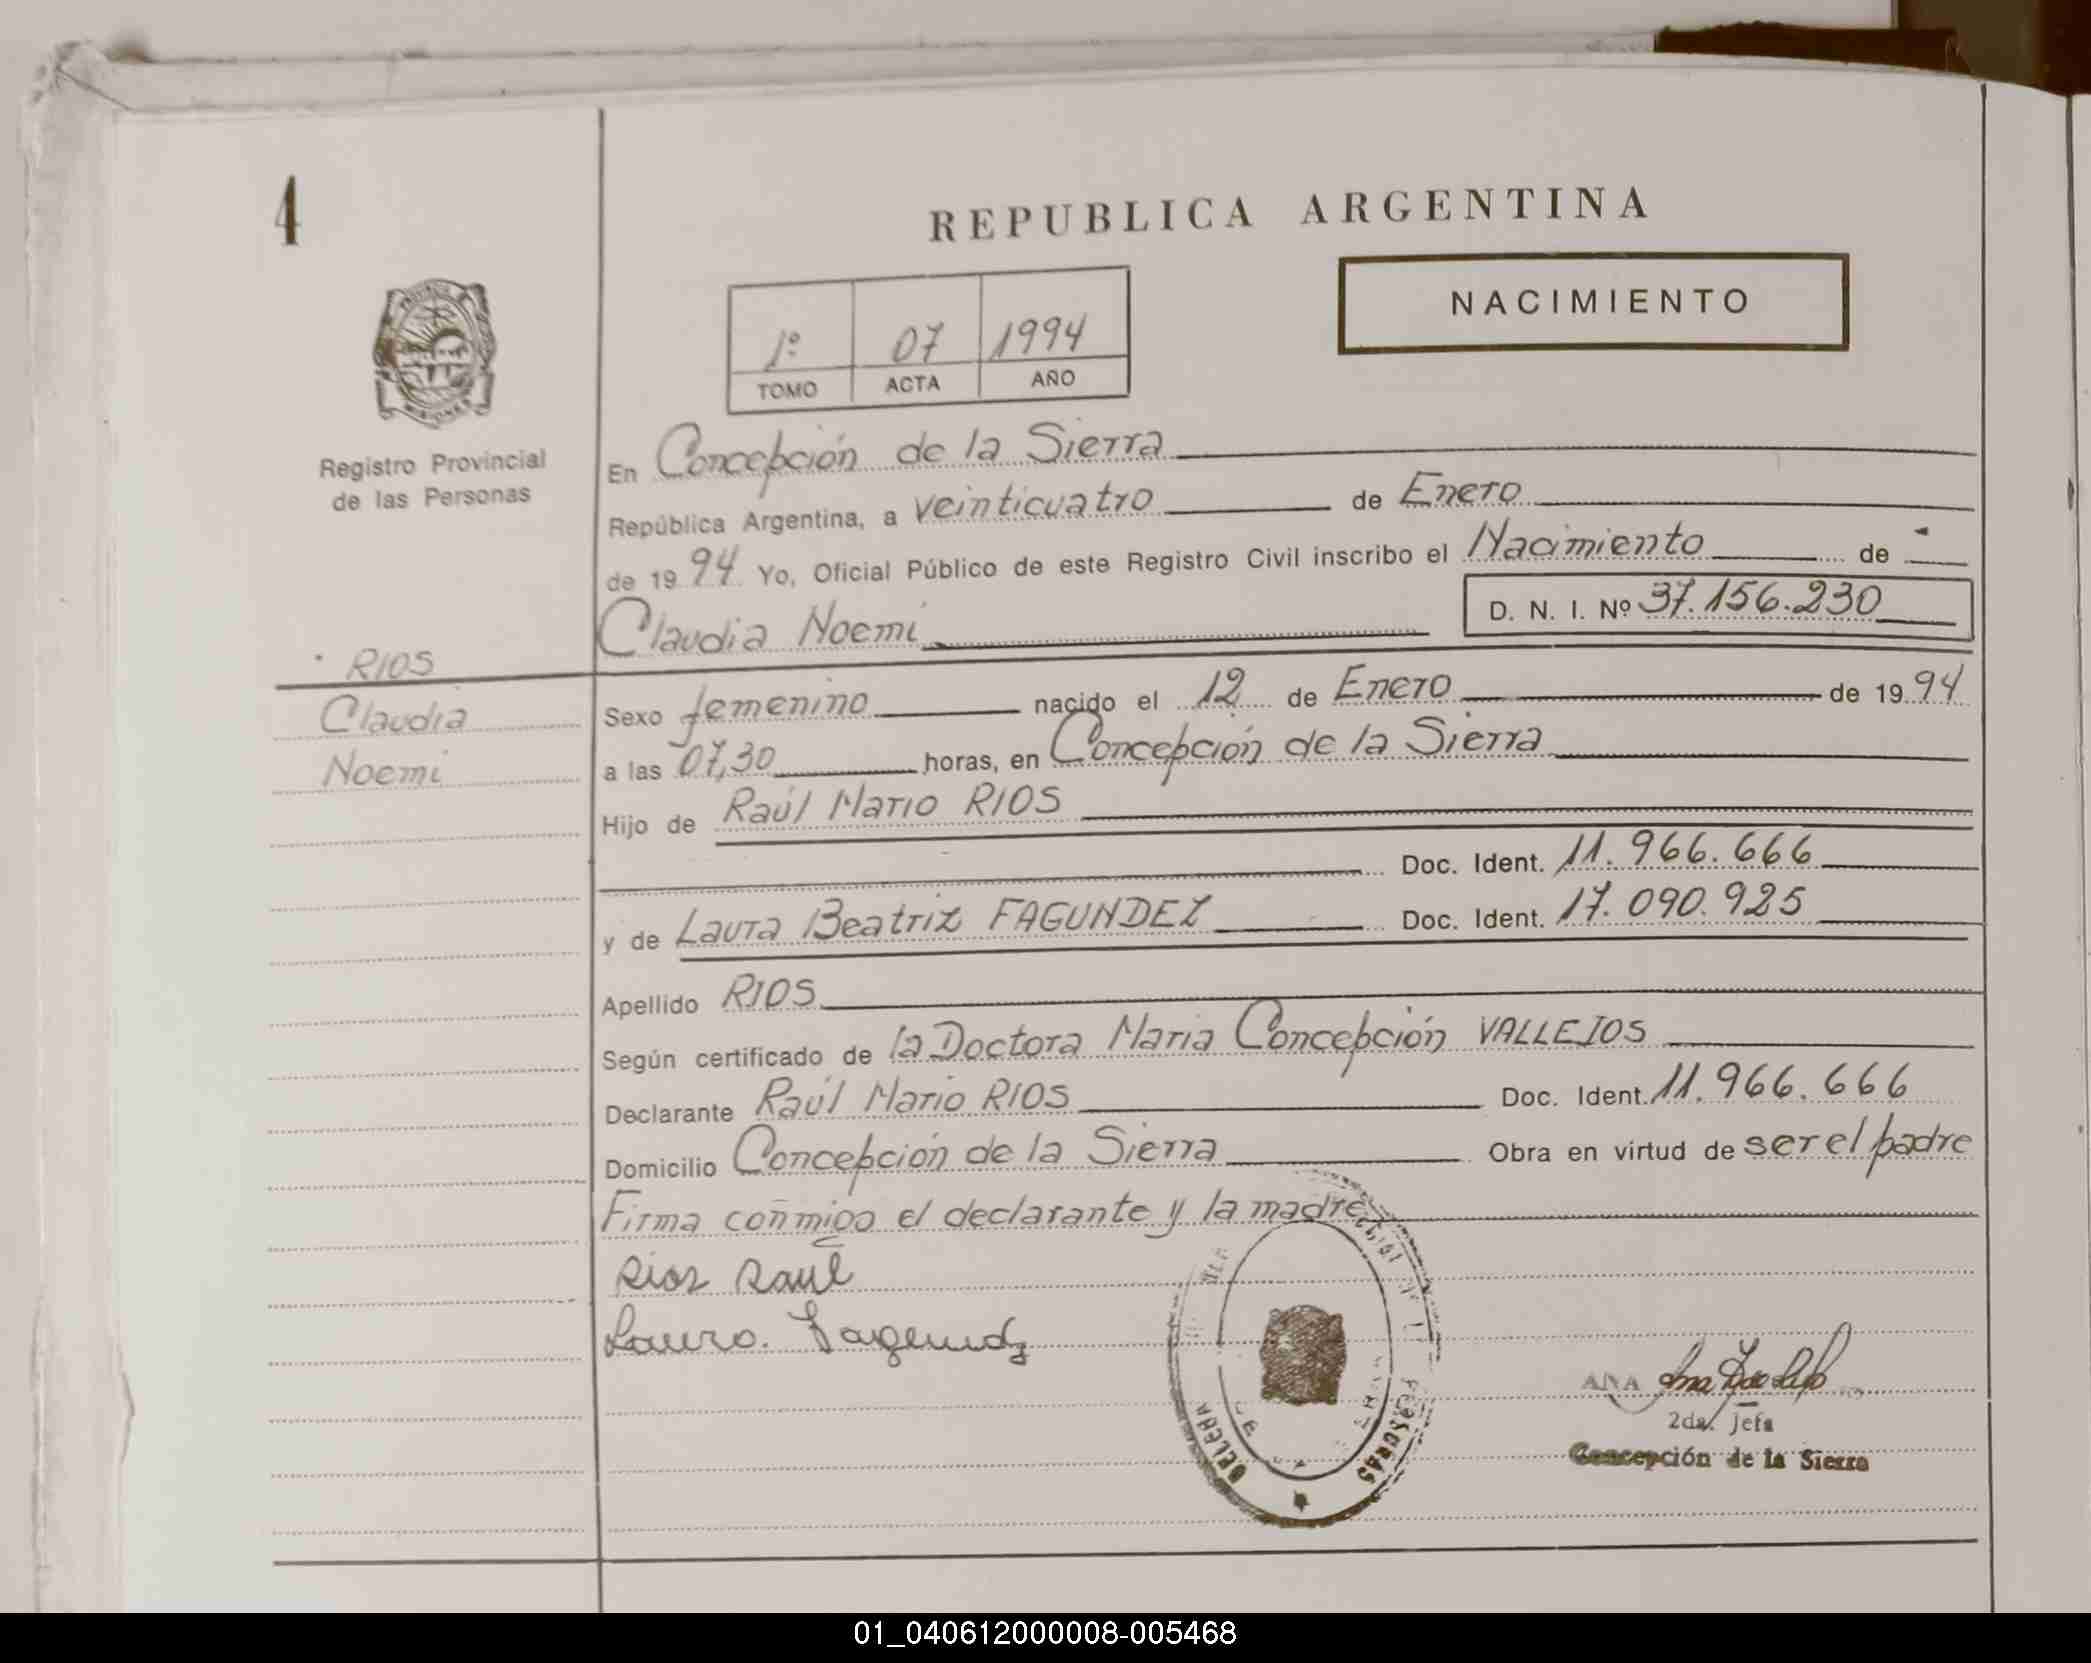 4
REPUBLICA ARGENTINA
NACIMIENTO
1º 07 1994
TOMO ACTA AÑO
Registro Provincial
de las Personas
En Concepción de la Sierra
República Argentina, a veinticuatro de Enero
de 19 94 Yo, Oficial Público de este Registro Civil inscribo el Nacimiento de
Claudia Noemi D. N. I. Nº 37.156.230
RIOS
Claudia
Noemi
Sexo femenino nacido el 12 de Enero de 19 94
a las 07,30 horas, en Concepción de la Sierra
Hijo de Raúl Mario RIOS
Doc. Ident. 11.966.666
y de Laura Beatriz FAGUNDEZ Doc. Ident. 17.090.925
Apellido RIOS
Según certificado de la Doctora Maria Concepción VALLEJOS
Declarante Raúl Mario RIOS Doc. Ident. 11.966.666
Domicilio Concepción de la Sierra Obra en virtud de ser el padre
Firma conmigo el declarante y la madre
Rios Raul
ANA
2da. Jefa
Concepción de la Sierra
01_040612000008-005468